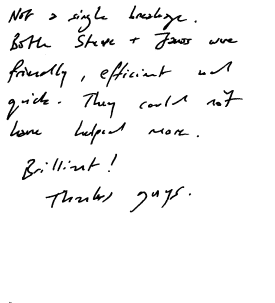 Not a single breakage.
Both Steve + were
friendly, efficient and
quick. They could not
have helped more.
Brilliant!
Thanks guys.